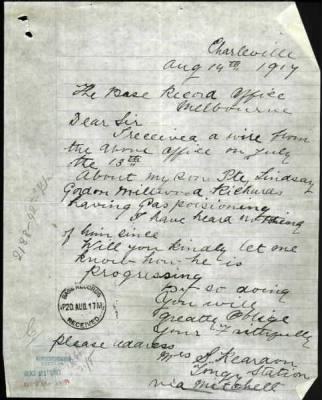 Charleville
Aug 14th 1917
The Base Record Office
Melbourne
Dear Sir
I received a wire from
the above office on July
the 13th
About my son Pte Lindsay
Gordon Millwood Richards
having Gas poisioning
I have heard nothing
of him since
Will you kindly let me
know how he is
progressing
by so doing
you will
greatly Oblige
Your Faithfully
please address
Mrs S Reardon
Tongy Station
via Mitchell
BASE RECORDS
20 AUG. 1917
RECEIVED